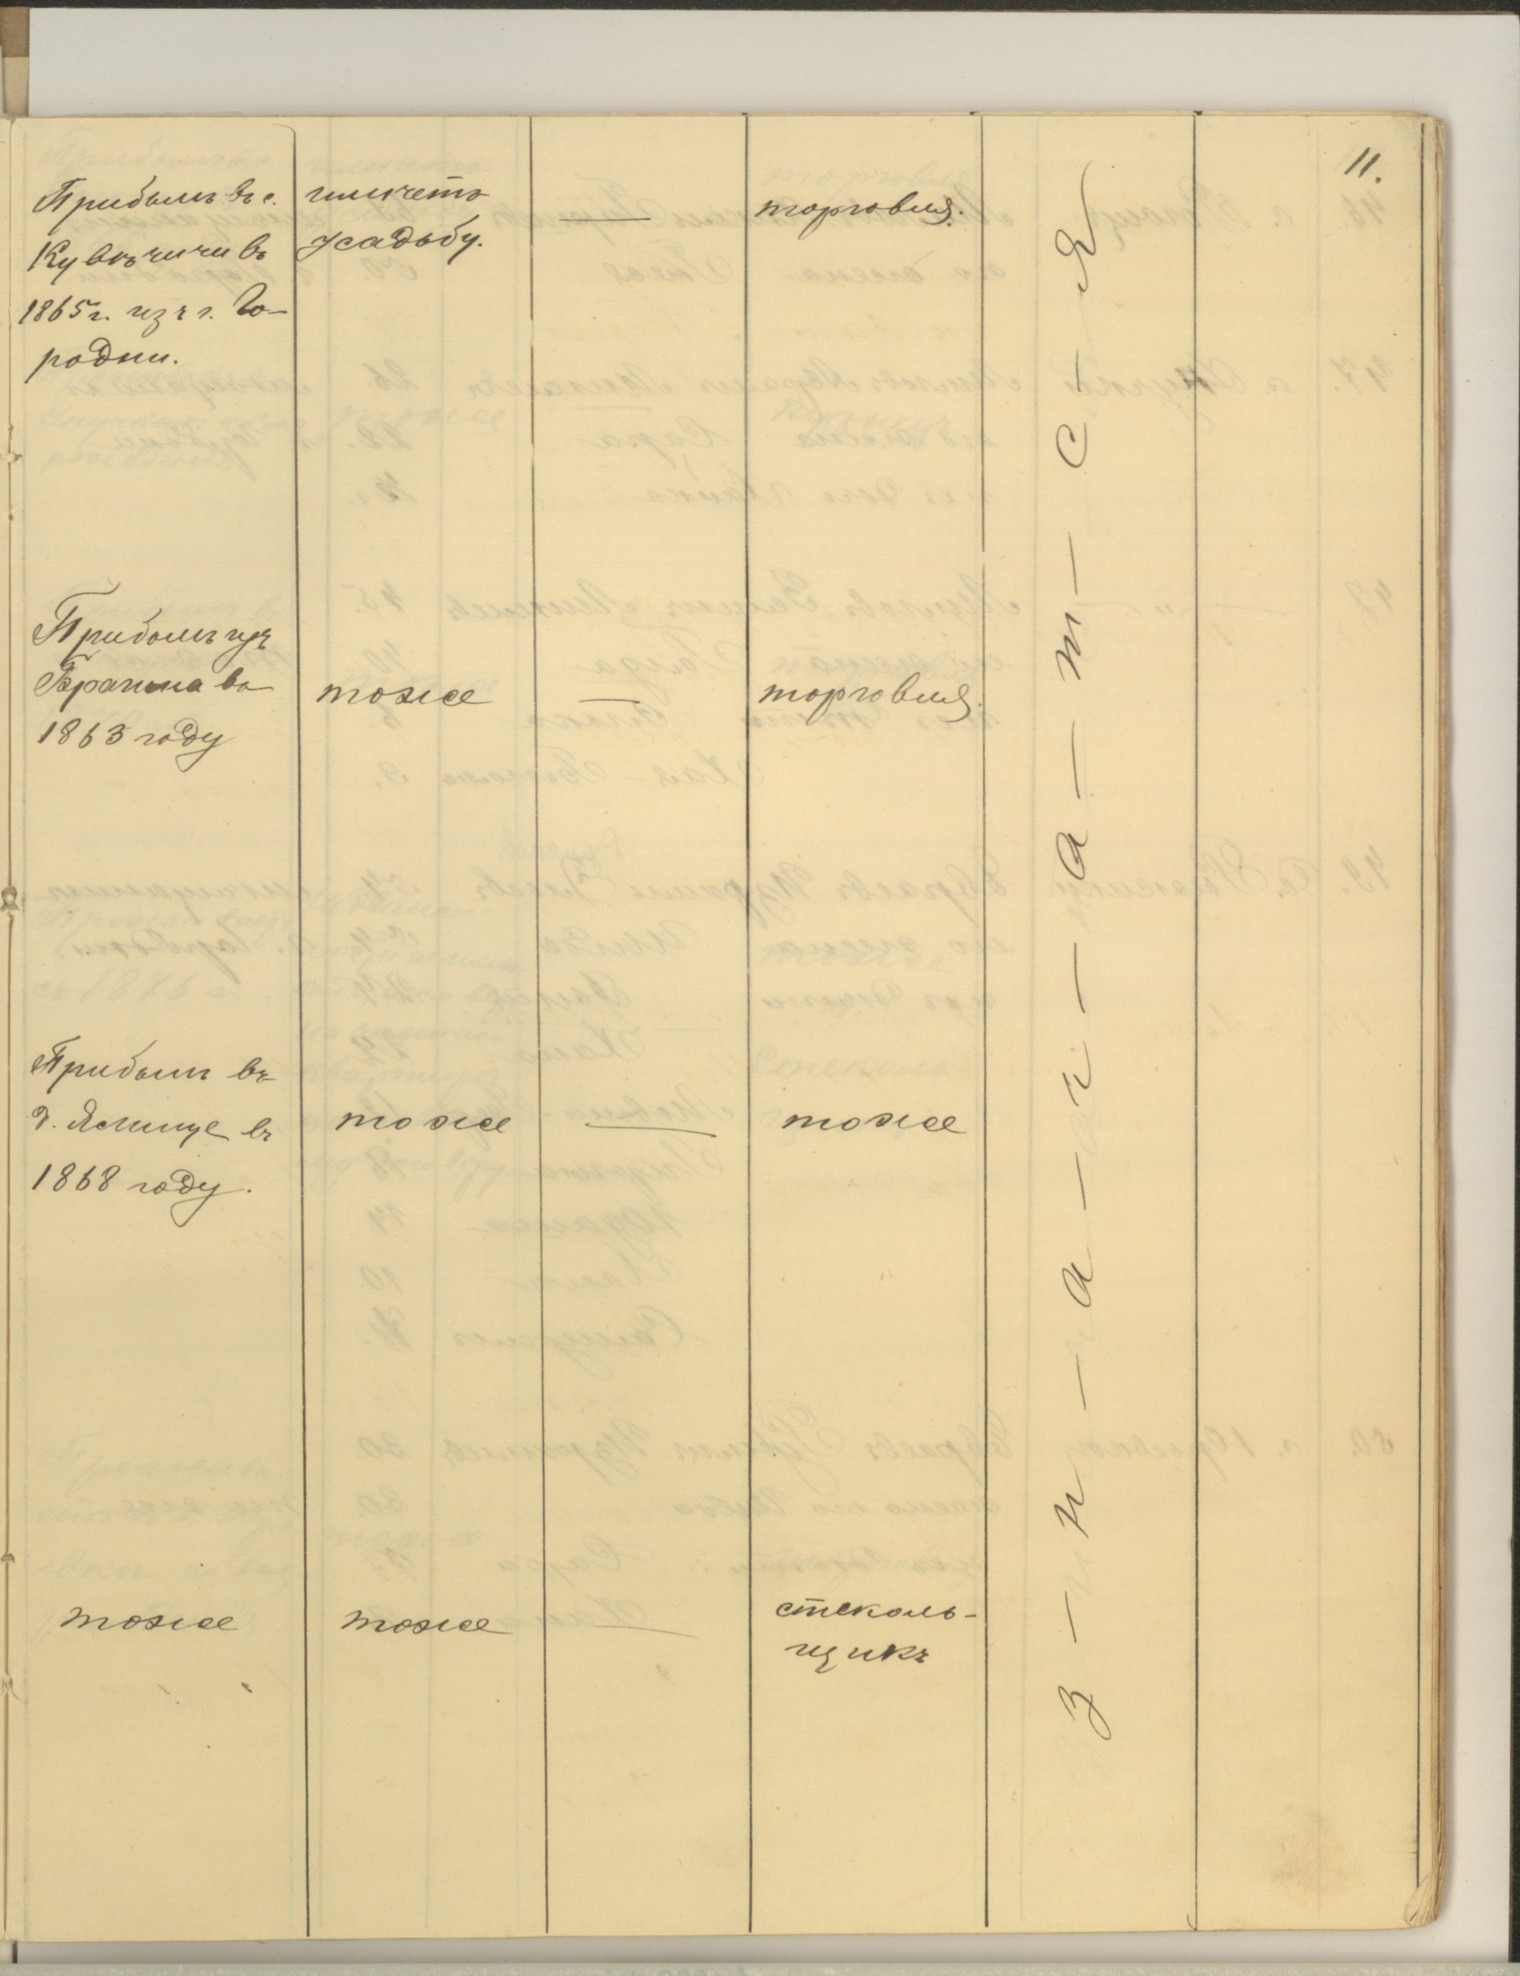 11.
Прибылъ въ с.
Кувѣчичи въ
1865 г. изъ г. Го-
родни.
имѣетъ
усадьбу.
—
торговля.
Прибылъ изъ
Брагина въ
1863 году
тоже
—
торговля.
Прибылъ въ
д. Ямище въ
1868 году.
тоже
—
тоже
тоже
тоже
—
стеколь-
щикъ
З-н-а-ч-а-т-с-я